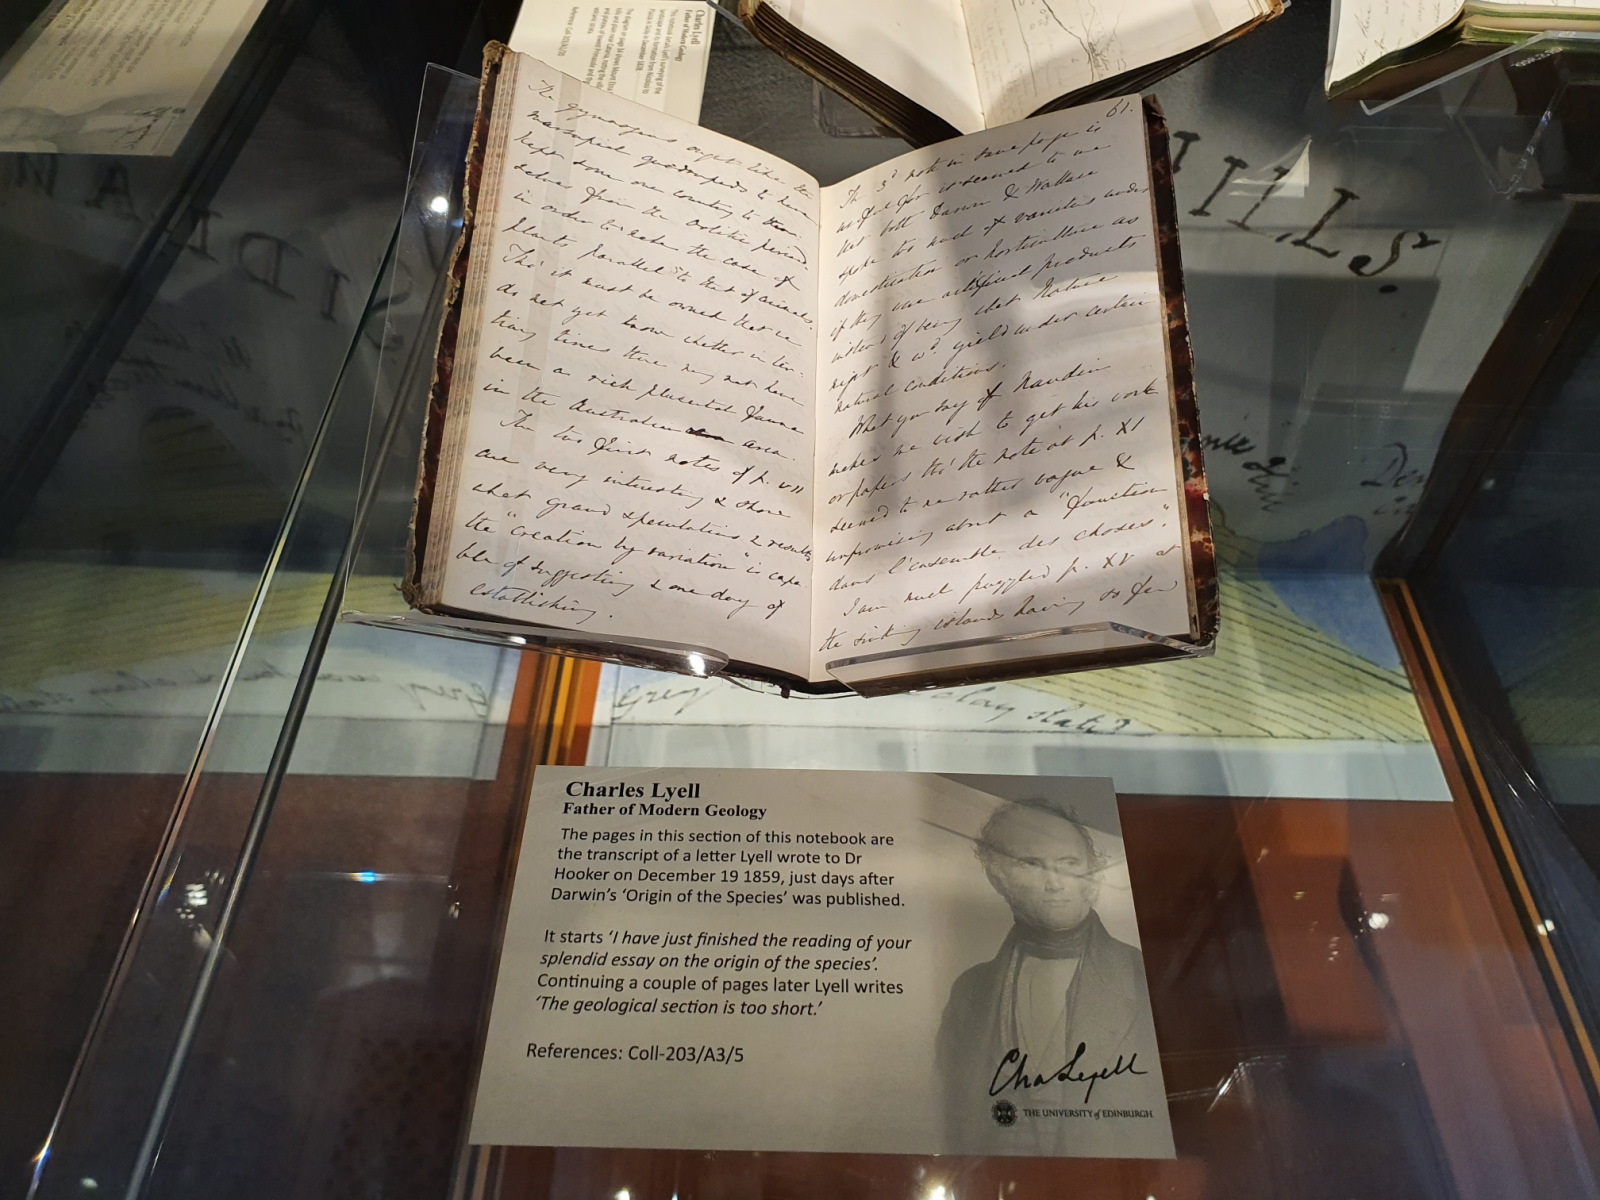 The gymnosperms ought like the
marsupial quadrupeds to have
kept some one country to them
selves from the Oolitic period
in order to make the case of
plants parallel to that of animals.
Tho' it must be owned that we
do not yet know whether in ter-
tiary times there may not have
been a rich placental fauna
in the Australian area.
The two first notes of p. VII
are very interesting & show
what grand speculations & results
the "creation by variation" is capa
ble of suggesting & one day of
establishing.
61.
The 3d note in same page is
as far for it seemed to me
that both Darwin & Wallace
spoke too much of varieties under
domestication or horticulture as
if they were artificial products
instead of being what Nature
might & wd. yield under certain
natural conditions.
What you say of Naudin
makes me wish to get his work
or papers tho' the note at p. XI
seemed to me rather vague &
unpromising about a "fonction
dans l'ensemble des choses".
I am much puzzled p. XV at
the sinking islands having so few
HILLS.
Grey
clay slate?
Charles Lyell
Father of Modern Geology
The pages in this section of this notebook are
the transcript of a letter Lyell wrote to Dr
Hooker on December 19 1859, just days after
Darwin's 'Origin of the Species' was published.
It starts 'I have just finished the reading of your
splendid essay on the origin of the species'.
Continuing a couple of pages later Lyell writes
'The geological section is too short.'
References: Coll-203/A3/5
Cha Lyell
THE UNIVERSITY of EDINBURGH